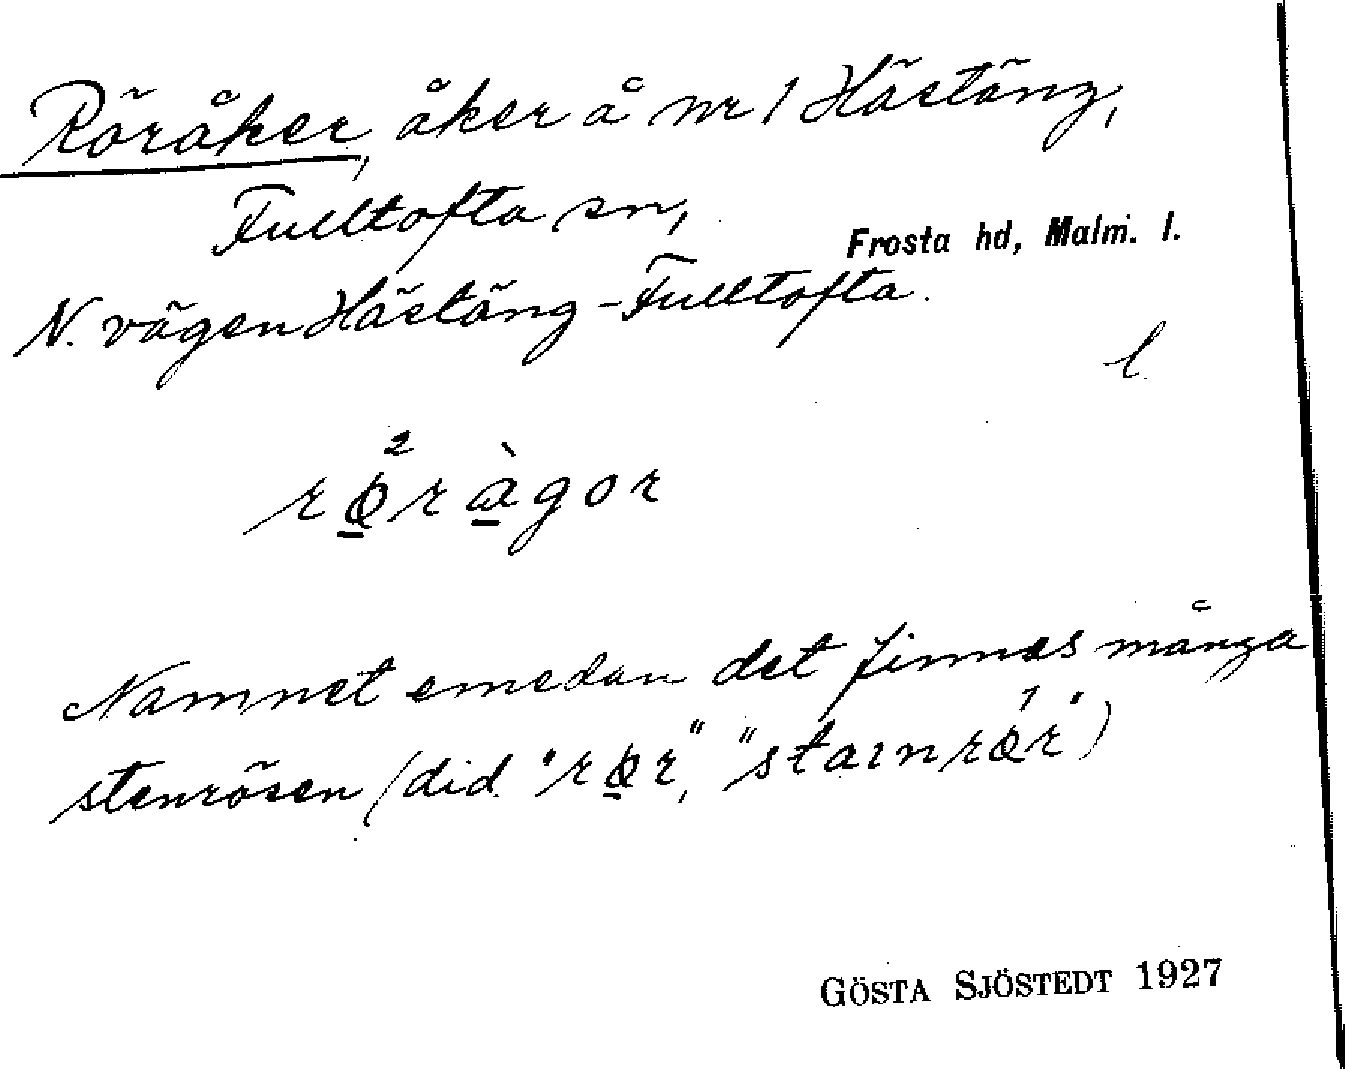 Röråker, åker å nr 1 Hästäng,
Fulltofta sn,
Frosta hd, Malm. l.
N. vägen Hästäng-Fulltofta.
l
rø̱²rà̱gor
Namnet emedan det finnes många
stenrösen (did. "rø̱r", "stainrø¹r")
GÖSTA SJÖSTEDT 1927